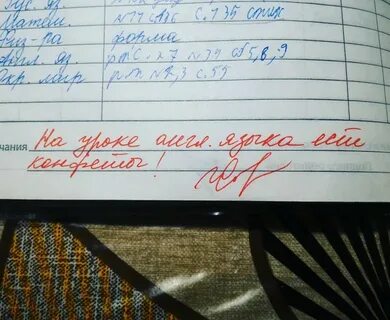 Рус. яз
Матем. №77 с. 135
Физ-ра форма
Англ. яз. р.т. с. 27 № 39 сб 5, 8, 9
Окр. мир р.т № 2, 3 с. 55
чания На уроке англ. языка ест
конфеты!